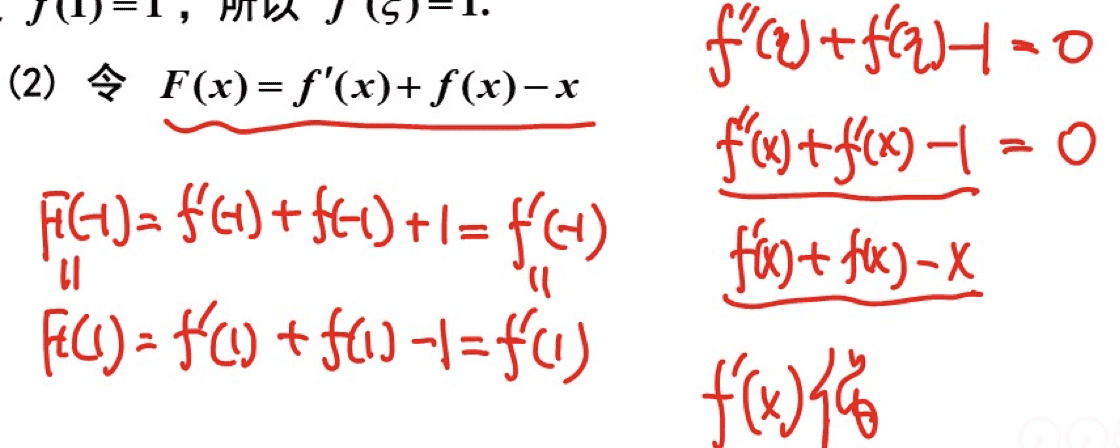 f(1)=1，所以 f′(ξ)=1.
(2) 令 F(x)=f′(x)+f(x)−x
F(-1)=f′(-1)+f(-1)+1=f′(-1)
||  ||
F(1)=f′(1)+f(1)-1=f′(1)
f″(η)+f′(η)-1=0
f″(x)+f′(x)-1=0
f′(x)+f(x)-x
f′(x)偶